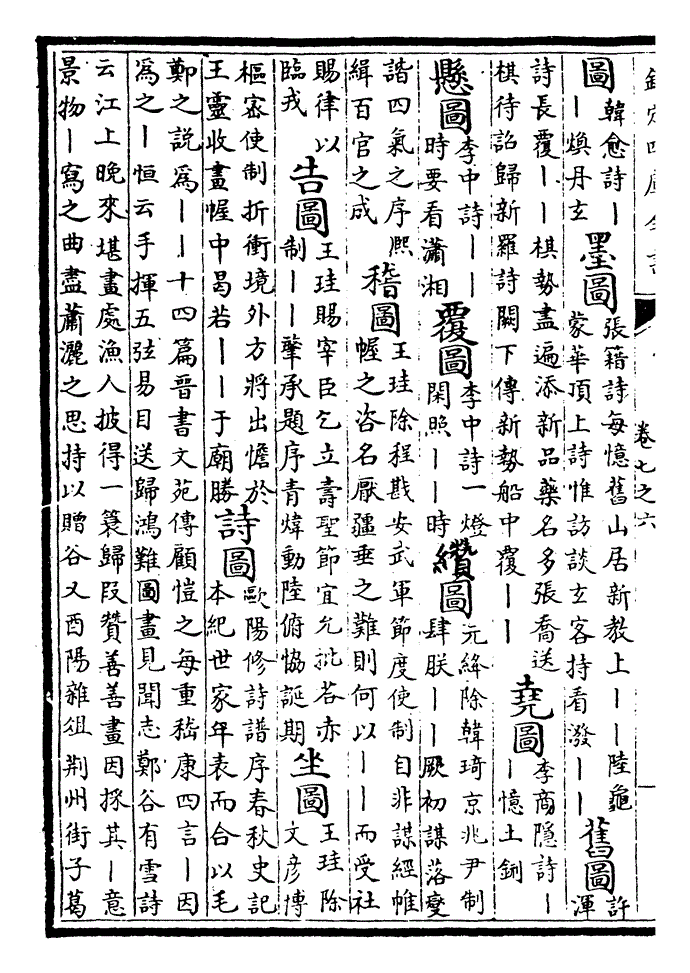 圖 韓愈詩丨丨煥丹玄 墨圖 張籍詩每憶舊山居新教上丨丨陸龜蒙華頂上詩惟訪談玄客持看潑丨丨 舊圖 許渾
詩長覆丨丨棋勢盡遍添新品藥名多張喬送棋待詔歸新羅詩闕下傳新勢船中覆丨丨 堯圖 李商隱詩丨丨憶土鉶
懸圖 李中詩丨丨時要看瀟湘 覆圖 李中詩一燈閑照丨丨時 纘圖 元絳除韓琦京兆尹制肆朕丨丨厥初謀落燮
諧四氣之序熙緝百官之成 稽圖 王珪除程戡安武軍節度使制自非謀經帷幄之咨名厭疆垂之難則何以丨丨而受社
賜律以臨戎 告圖 王珪賜宰臣乞立壽聖節宜允批荅亦制丨丨肇承題序青煒動陸俯協誕期 坐圖 王珪除文彥博
樞宻使制折衝境外方將出憺於王靈收畫幄中曷若丨丨于廟勝 詩圖 歐陽修詩譜序春秋史記本紀世家年表而合以毛
鄭之說爲丨丨十四篇晉書文苑傳顧愷之每重嵇康四言丨因
爲之丨恒云手揮五弦易目送歸鴻難圖畫見聞志鄭谷有雪詩
云江上晚來堪畫處漁人披得一簑歸段贊善善畫因採其丨意
景物丨寫之曲盡蕭灑之思持以贈谷又酉陽雜俎荆州街子葛
卷七之六
一